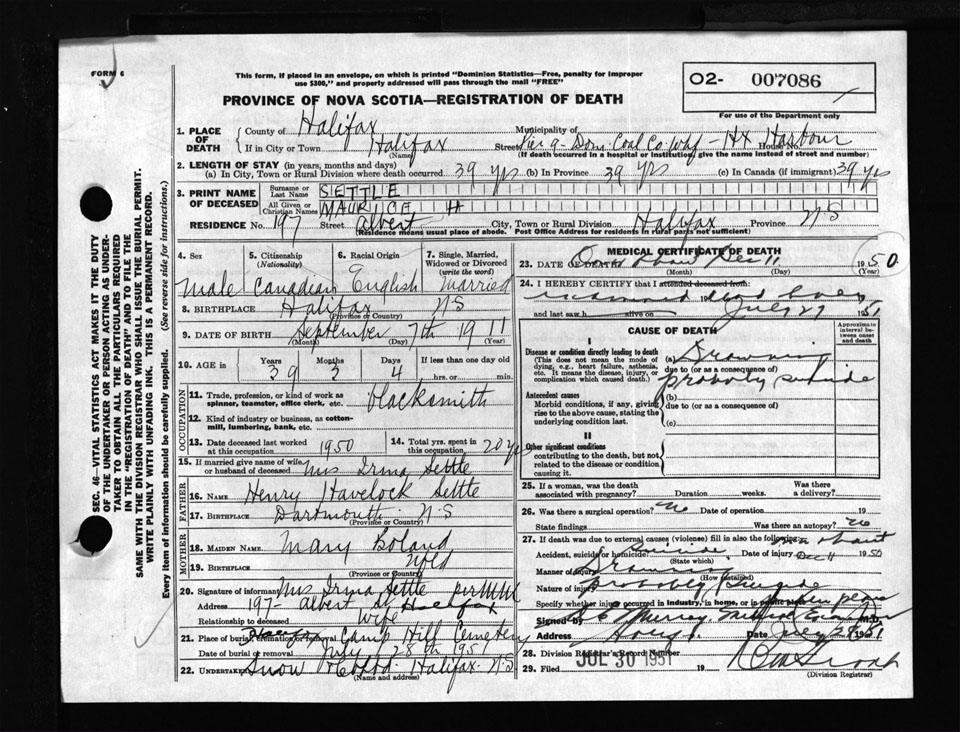 FORM 6
This form, if placed in an envelope, on which is printed "Dominion Statistics—Free, penalty for improper
use $300," and properly addressed will pass through the mail "FREE"
PROVINCE OF NOVA SCOTIA—REGISTRATION OF DEATH
O2- 007086
For use of the Department only
1. PLACE OF DEATH
County of Halifax
Municipality of
If in City or Town Halifax Street Pier 9 - Dom. Coal Co. Whf - Hx Harbour House No.
(Name) (If death occurred in a hospital or institution, give the name instead of street and number)
2. LENGTH OF STAY (in years, months and days)
(a) In City, Town or Rural Division where death occurred. 39 yrs (b) In Province 39 yrs (c) In Canada (if immigrant) 39 yrs
3. PRINT NAME OF DECEASED
Surname or Last Name SETTLE
All Given or Christian Names MAURICE H
RESIDENCE No. 197 Street Albert City, Town or Rural Division Halifax Province N.S
(Residence means usual place of abode. Post Office Address for residents in rural parts not sufficient)
4. Sex Male
5. Citizenship (Nationality) Canadian
6. Racial Origin English
7. Single, Married, Widowed or Divorced (write the word) Married
8. BIRTHPLACE Halifax N S
(Province or Country)
9. DATE OF BIRTH September 7th 1911
(Month) (Day) (Year)
10. AGE in Years 39 Months 3 Days 4 If less than one day old
hrs. or min.
OCCUPATION
11. Trade, profession, or kind of work as spinner, teamster, office clerk, etc. blacksmith
12. Kind of industry or business, as cotton-mill, lumbering, bank, etc.
13. Date deceased last worked at this occupation 1950
14. Total yrs. spent in this occupation. 20 yrs
15. If married give name of wife or husband of deceased Mrs Irma Settle
FATHER
16. NAME Henry Havelock Settle
17. BIRTHPLACE Dartmouth N.S
(Province or Country)
MOTHER
18. MAIDEN NAME Mary Boland
19. BIRTHPLACE Nfld
(Province or Country)
20. Signature of informant Mrs Irma Settle
Address 197- Albert St Halifax
Relationship to deceased Wife
21. Place of burial, cremation or removal Camp Hill Cemetery
Date of burial or removal July 28th 1951
22. UNDERTAKER Snow Halifax N.S
(Name and address)
MEDICAL CERTIFICATE OF DEATH
23. DATE OF Dec 11 1950
(Month) (Day) (Year)
24. I HEREBY CERTIFY that I attended deceased from:
dead
and last saw h alive on July 27 1951
CAUSE OF DEATH
Approximate interval between onset and death
I
Disease or condition directly leading to death (a) Drowning
(This does not mean the mode of dying, e.g., heart failure, asthenia, etc. It means the disease, injury, or complication which caused death.)
due to (or as a consequence of)
probably suicide
Antecedent causes (b)
Morbid conditions, if any, giving rise to the above cause, stating the underlying condition last.
due to (or as a consequence of)
(c)
II
Other significant conditions
contributing to the death, but not related to the disease or condition causing it.
25. If a woman, was the death associated with pregnancy? Duration weeks. Was there a delivery?
26. Was there a surgical operation? No Date of operation 19
State findings Was there an autopsy? No
27. If death was due to external causes (violence) fill in also the following:
Accident, suicide or homicide? Suicide Date of injury Dec 11 1950
(State which)
Manner of injury Drowning
(How sustained)
Nature of injury probably suicide
Specify whether injury occurred in industry, in home, or in public place
Signed by Murray M.D.
Address Date July 28 1951
28. Division Registrar's Record Number
29. Filed JUL 30 1951 19
(Division Registrar)
SEC. 46—VITAL STATISTICS ACT MAKES IT THE DUTY
OF THE UNDERTAKER OR PERSON ACTING AS UNDER-
TAKER TO OBTAIN ALL THE PARTICULARS REQUIRED
IN THE "REGISTRATION OF DEATH" AND TO FILE THE
SAME WITH THE DIVISION REGISTRAR WHO SHALL ISSUE THE BURIAL PERMIT.
WRITE PLAINLY WITH UNFADING INK. THIS IS A PERMANENT RECORD.
Every item of information should be carefully supplied. (See reverse side for instructions.)